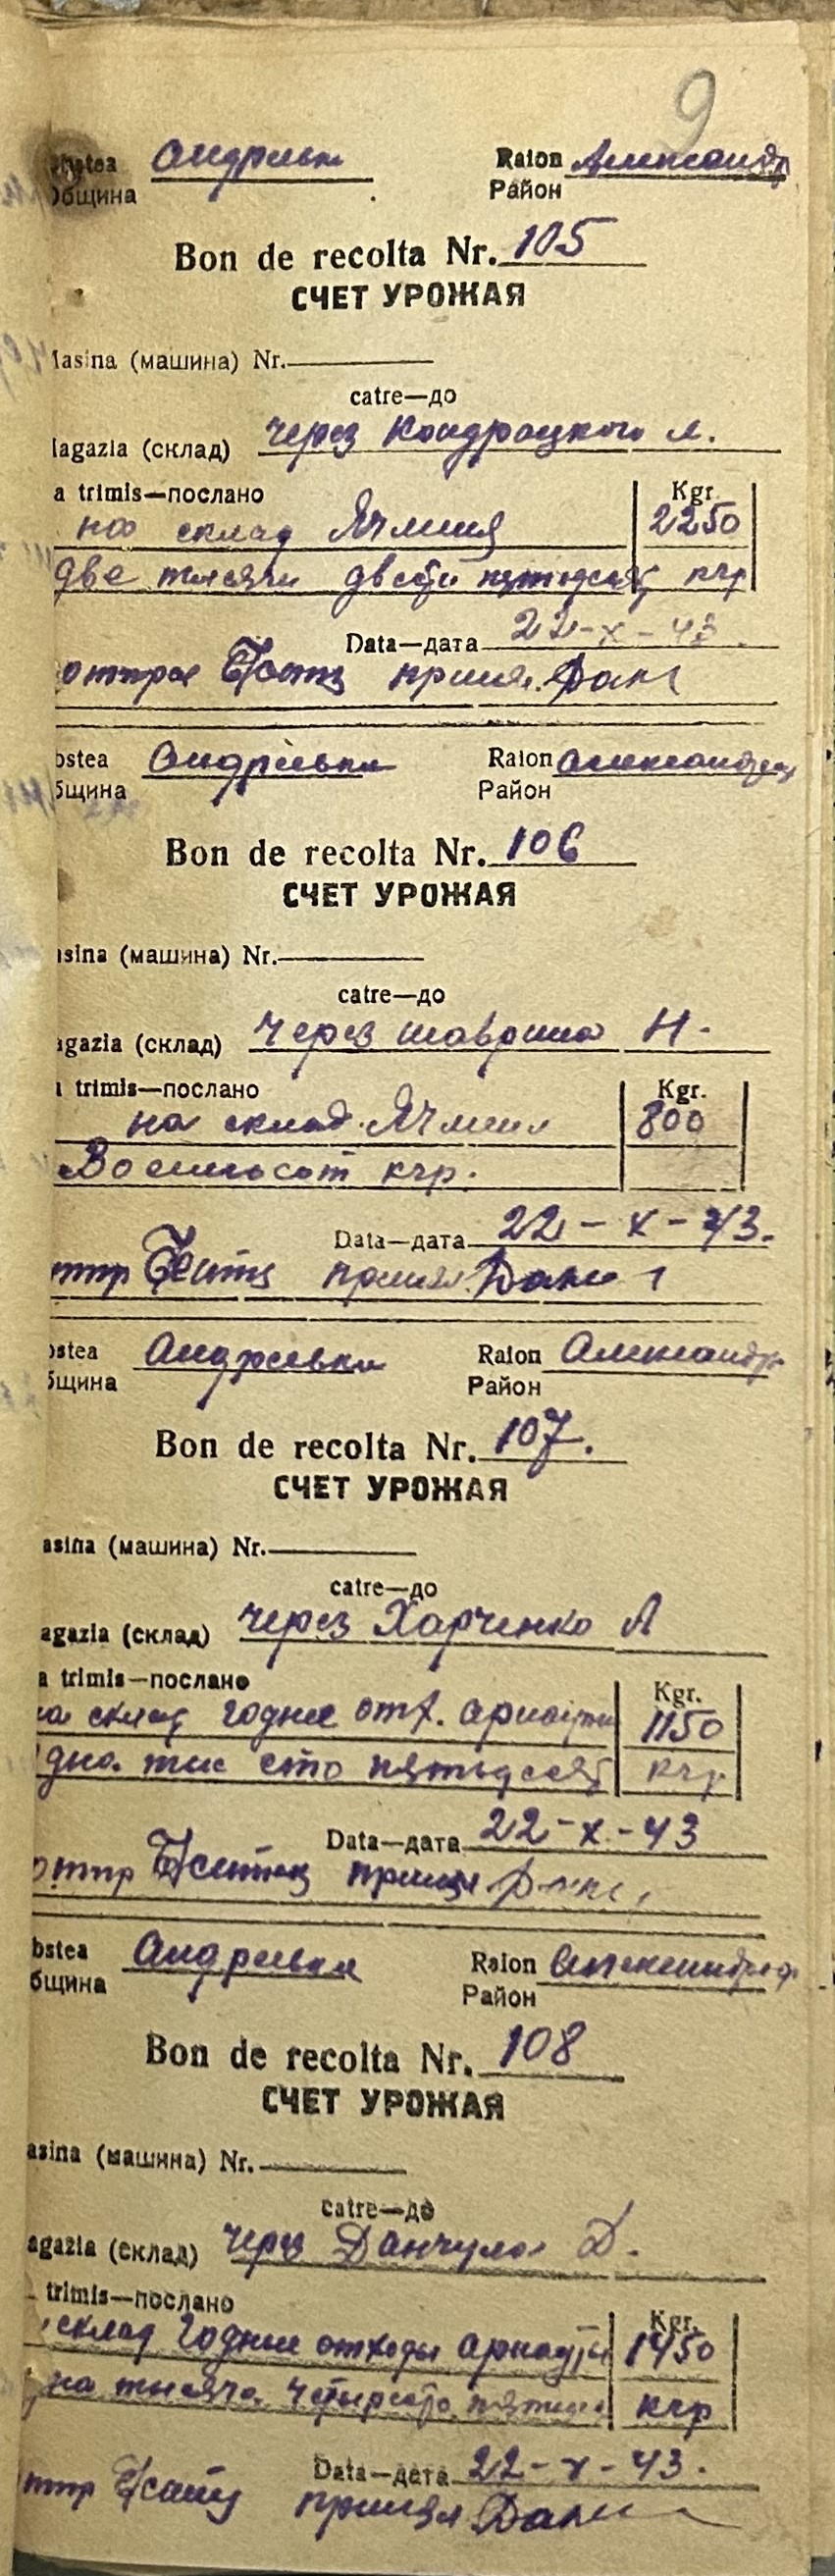 9
Община Андриевка Raion Александр
Район
Bon de recolta Nr. 105
СЧЕТ УРОЖАЯ
asina (машина) Nr.
catre—до
agazia (склад) через Кондрацкого
a trimis—послано Kgr.
на склад Ячменя 2250
две тысячи двести пятьдесят кгр
Data—дата 22-X-43.
принял
bstea Андриевка Raion Александр
бщина Район
Bon de recolta Nr. 106
СЧЕТ УРОЖАЯ
sina (машина) Nr.
catre—до
agazia (склад) через Шаврина Н.
trimis—послано Kgr.
на склад Ячменя 800
Восемьсот кгр.
Data—дата 22-X-43.
принял
stea Андреевка Raion Александр
бщина Район
Bon de recolta Nr. 107.
СЧЕТ УРОЖАЯ
asina (машина) Nr.
catre—до
agazia (склад) через Харченко А
a trimis—послано Kgr.
на склад годные отх. арнаутки 1150
дна тыс сто пятьдесят кгр
Data—дата 22-X-43
принял
bstea Андреевка Raion Александр
бщина Район
Bon de recolta Nr. 108
СЧЕТ УРОЖАЯ
asina (машина) Nr.
catre—до
agazia (склад) через Данчула Д.
trimis—послано Kgr.
склад годные отходы арнаутки 1450
на тысяча четыреста пятьдес кгр
Data—дата 22-X-43.
принял